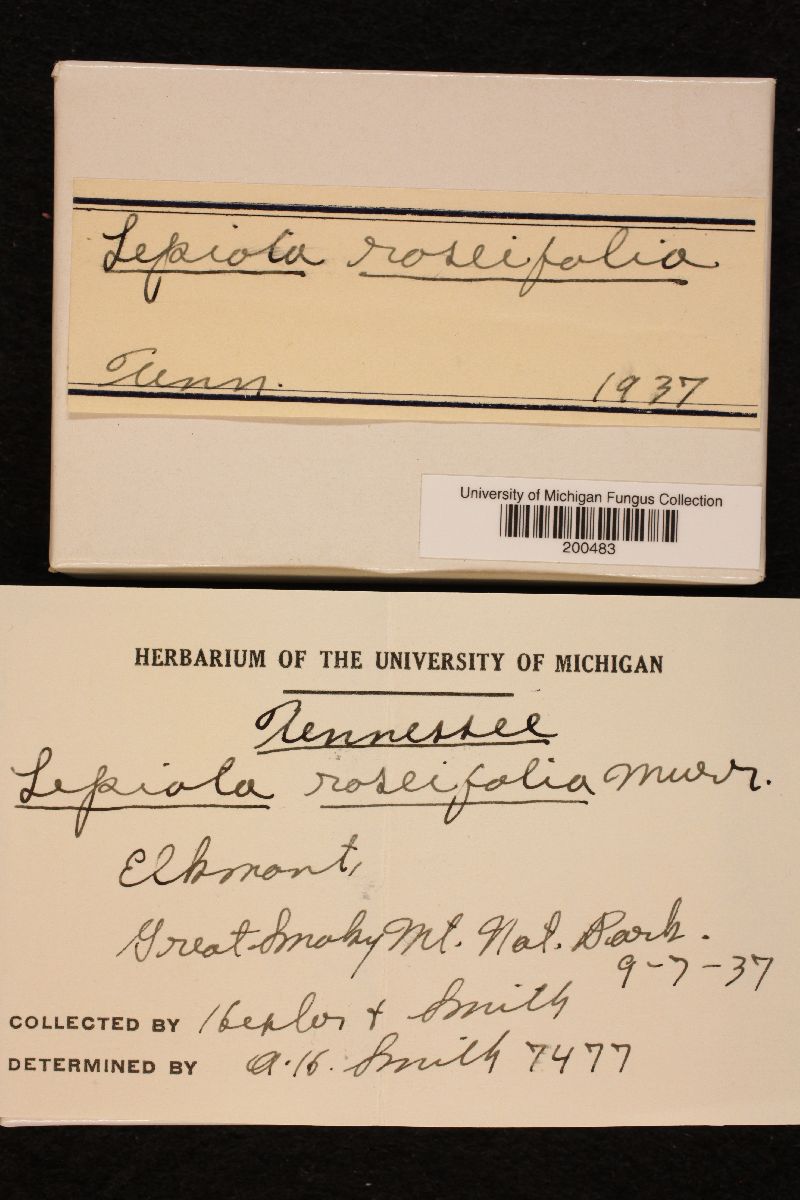 Lepiota roseifolia
Tenn. 1937
University of Michigan Fungus Collection
200483
HERBARIUM OF THE UNIVERSITY OF MICHIGAN
Tennessee
Lepiota roseifolia Murr.
Elkmont,
Great Smoky Mt. Nat. Park.
9-7-37
COLLECTED BY Hesler & Smith
DETERMINED BY A.H. Smith 7477